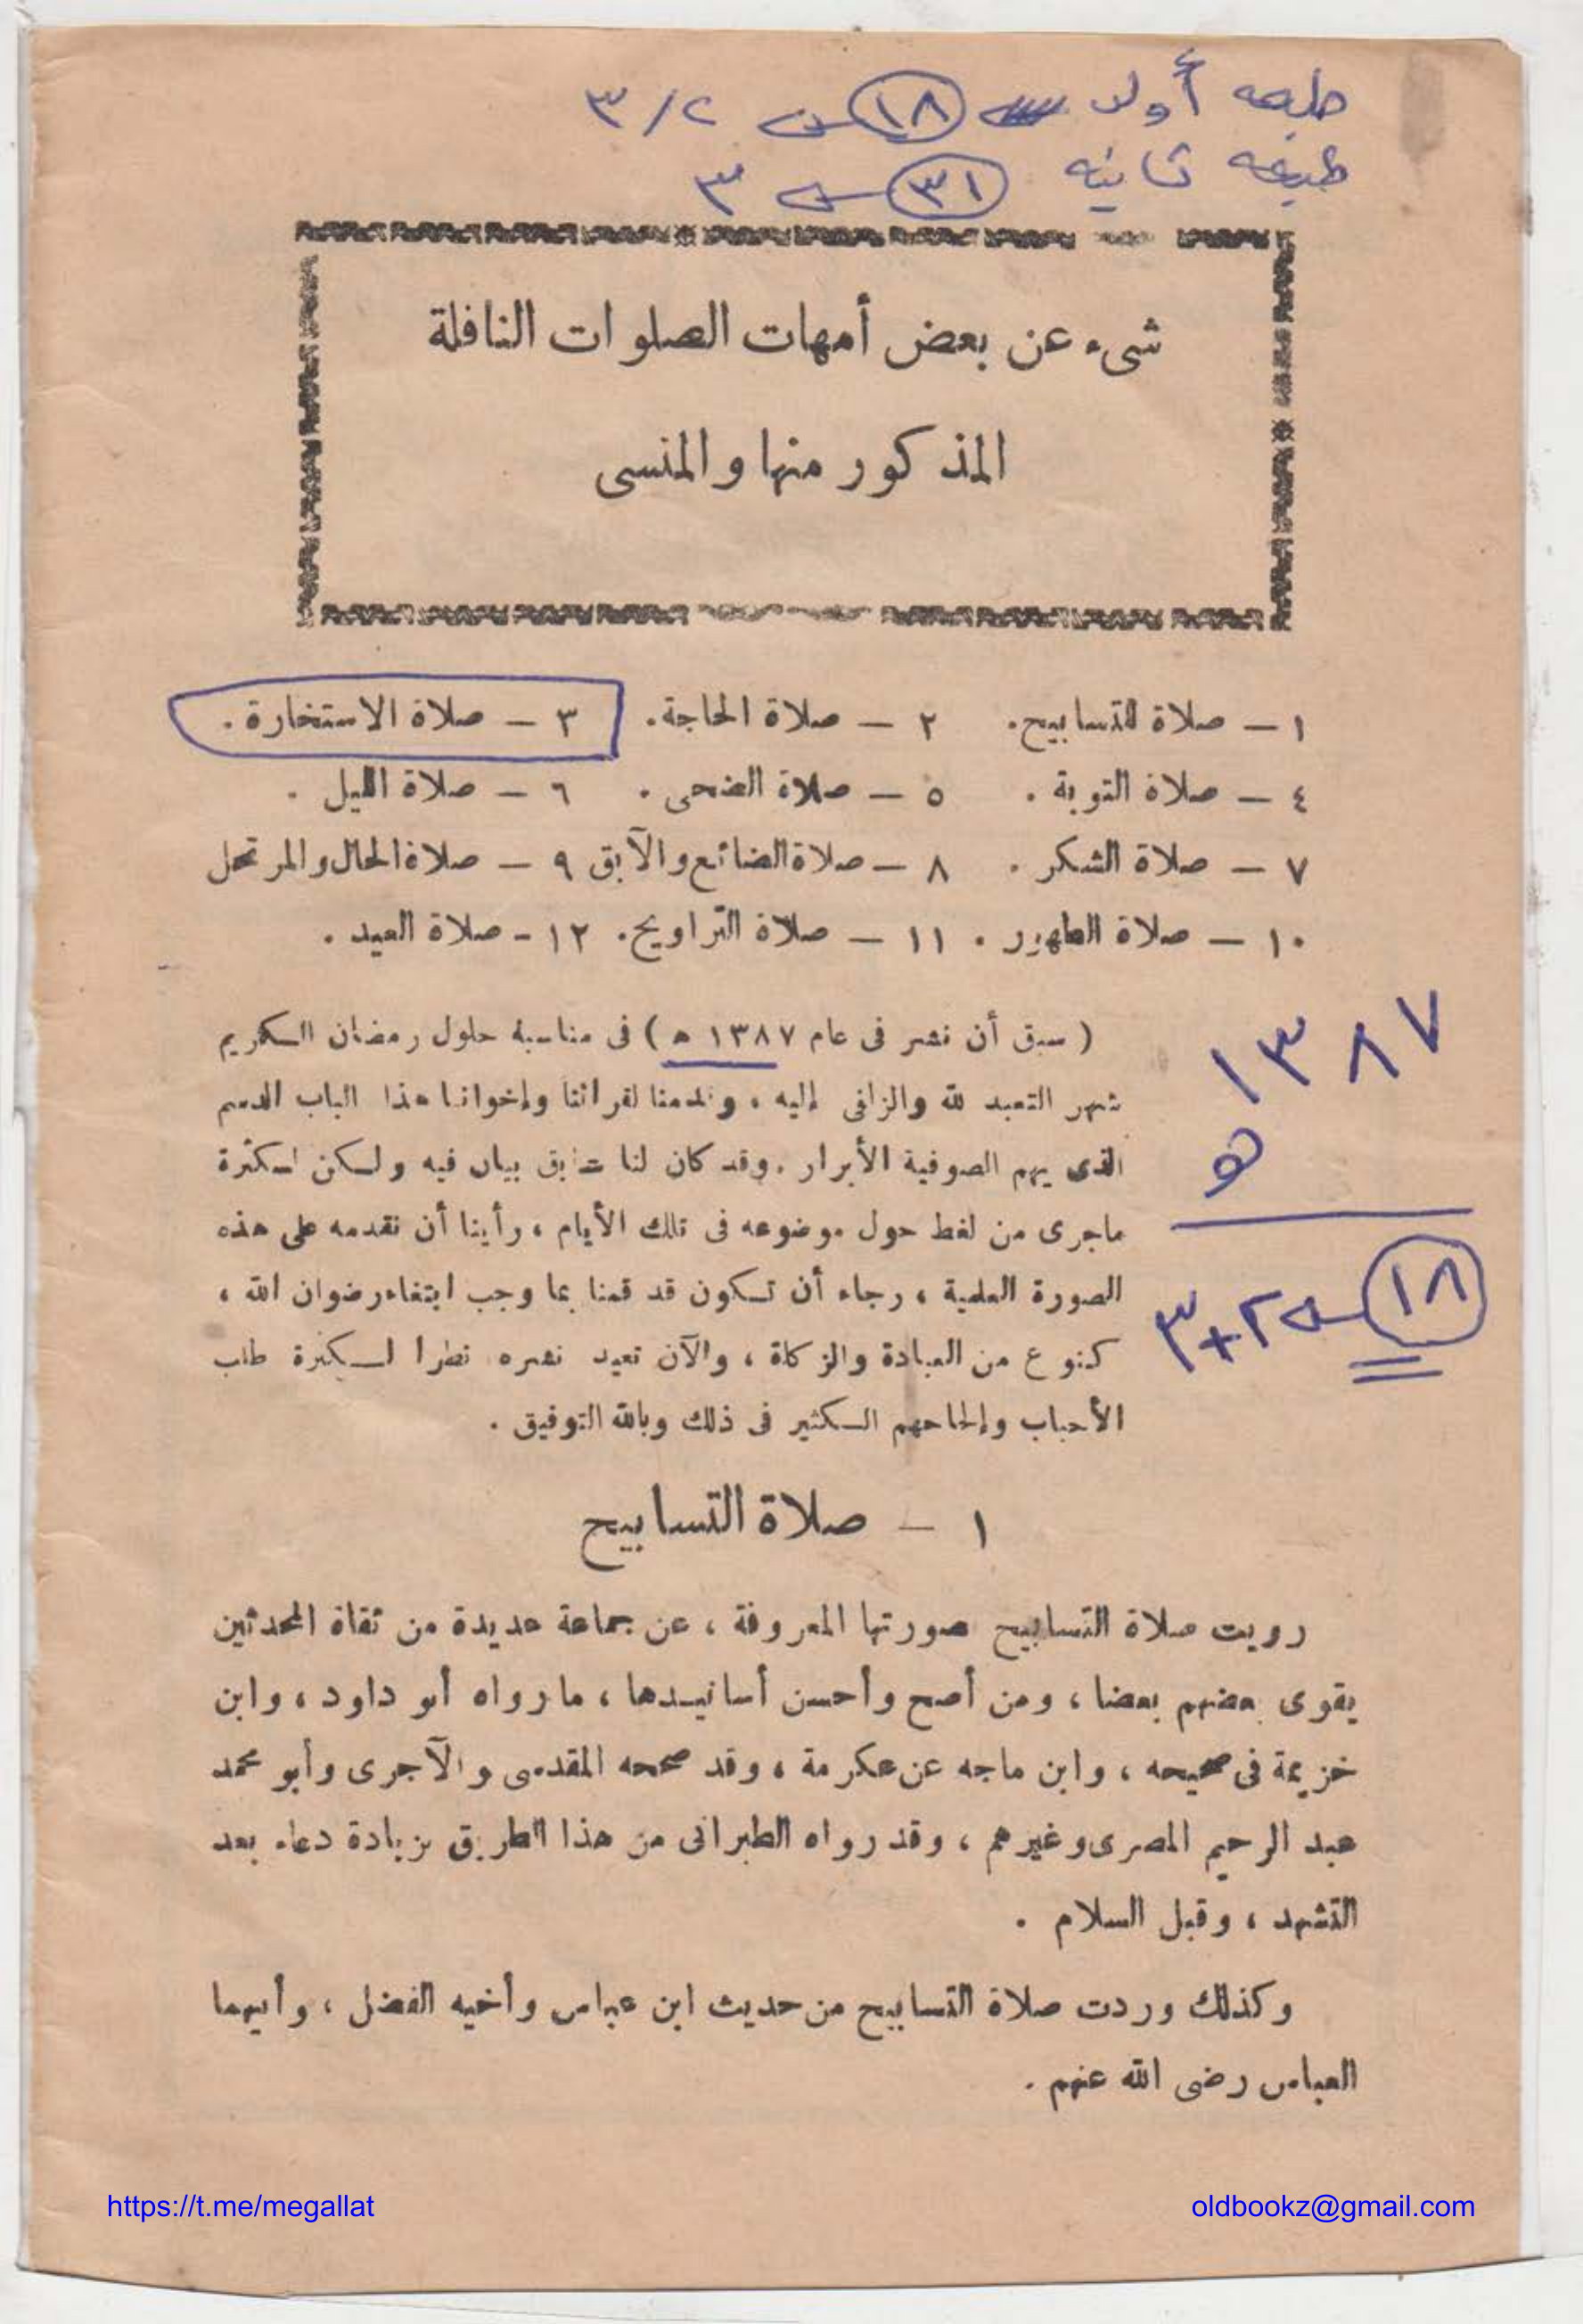 طبعه أولى ١٨ س ٢/٣
طبعه ثانيه ٣١ س ٣
شىء عن بعض أمهات الصلوات النافلة
المذكور منها والمنسى
١ – صلاة التسابيح. ٢ – صلاة الحاجة. ٣ – صلاة الاستخارة.
٤ – صلاة التوبة. ٥ – صلاة الضحى. ٦ – صلاة الليل.
٧ – صلاة الشكر. ٨ – صلاة الضائع والآبق ٩ – صلاة الحال والمرتحل
١٠ – صلاة الطهور. ١١ – صلاة التراويح. ١٢ – صلاة العيد.
( سبق أن نشر فى عام ١٣٨٧ ه ) فى مناسبة حلول رمضان الكريم
شهر التعبد لله والزلفى إليه ، وقدمنا لقرائنا وإخواننا هذا الباب الدسم
الذى يهم الصوفية الأبرار . وقد كان لنا سابق بيان فيه ولكن لكثرة
ماجرى من لغط حول موضوعه فى تلك الأيام ، رأينا أن نقدمه على هذه
الصورة العلمية ، رجاء أن تكون قد قمنا بما وجب ابتغاء رضوان الله ،
كنوع من العبادة والزكاة ، والآن نعيد نشره نظرا لكثرة طلب
الأحباب وإلحاحهم الكثير فى ذلك وبالله التوفيق .
١٣٨٧
ه
١٨ س ٢+٣
١ – صلاة التسابيح
رويت صلاة التسابيح صورتها المعروفة ، عن جماعة عديدة من ثقاة المحدثين
يقوى بعضهم بعضا ، ومن أصح وأحسن أسانيدها ، مارواه أبو داود ، وابن
خزيمة فى صحيحه ، وابن ماجه عن عكرمة ، وقد صححه المقدسى والآجرى وأبو محمد
عبد الرحيم المصرى وغيرهم ، وقد رواه الطبرانى من هذا الطريق بزيادة دعاء بعد
التشهد ، وقبل السلام .
وكذلك وردت صلاة التسابيح من حديث ابن عباس وأخيه الفضل ، وأبيهما
العباس رضى الله عنهم .
https://t.me/megallat
oldbookz@gmail.com